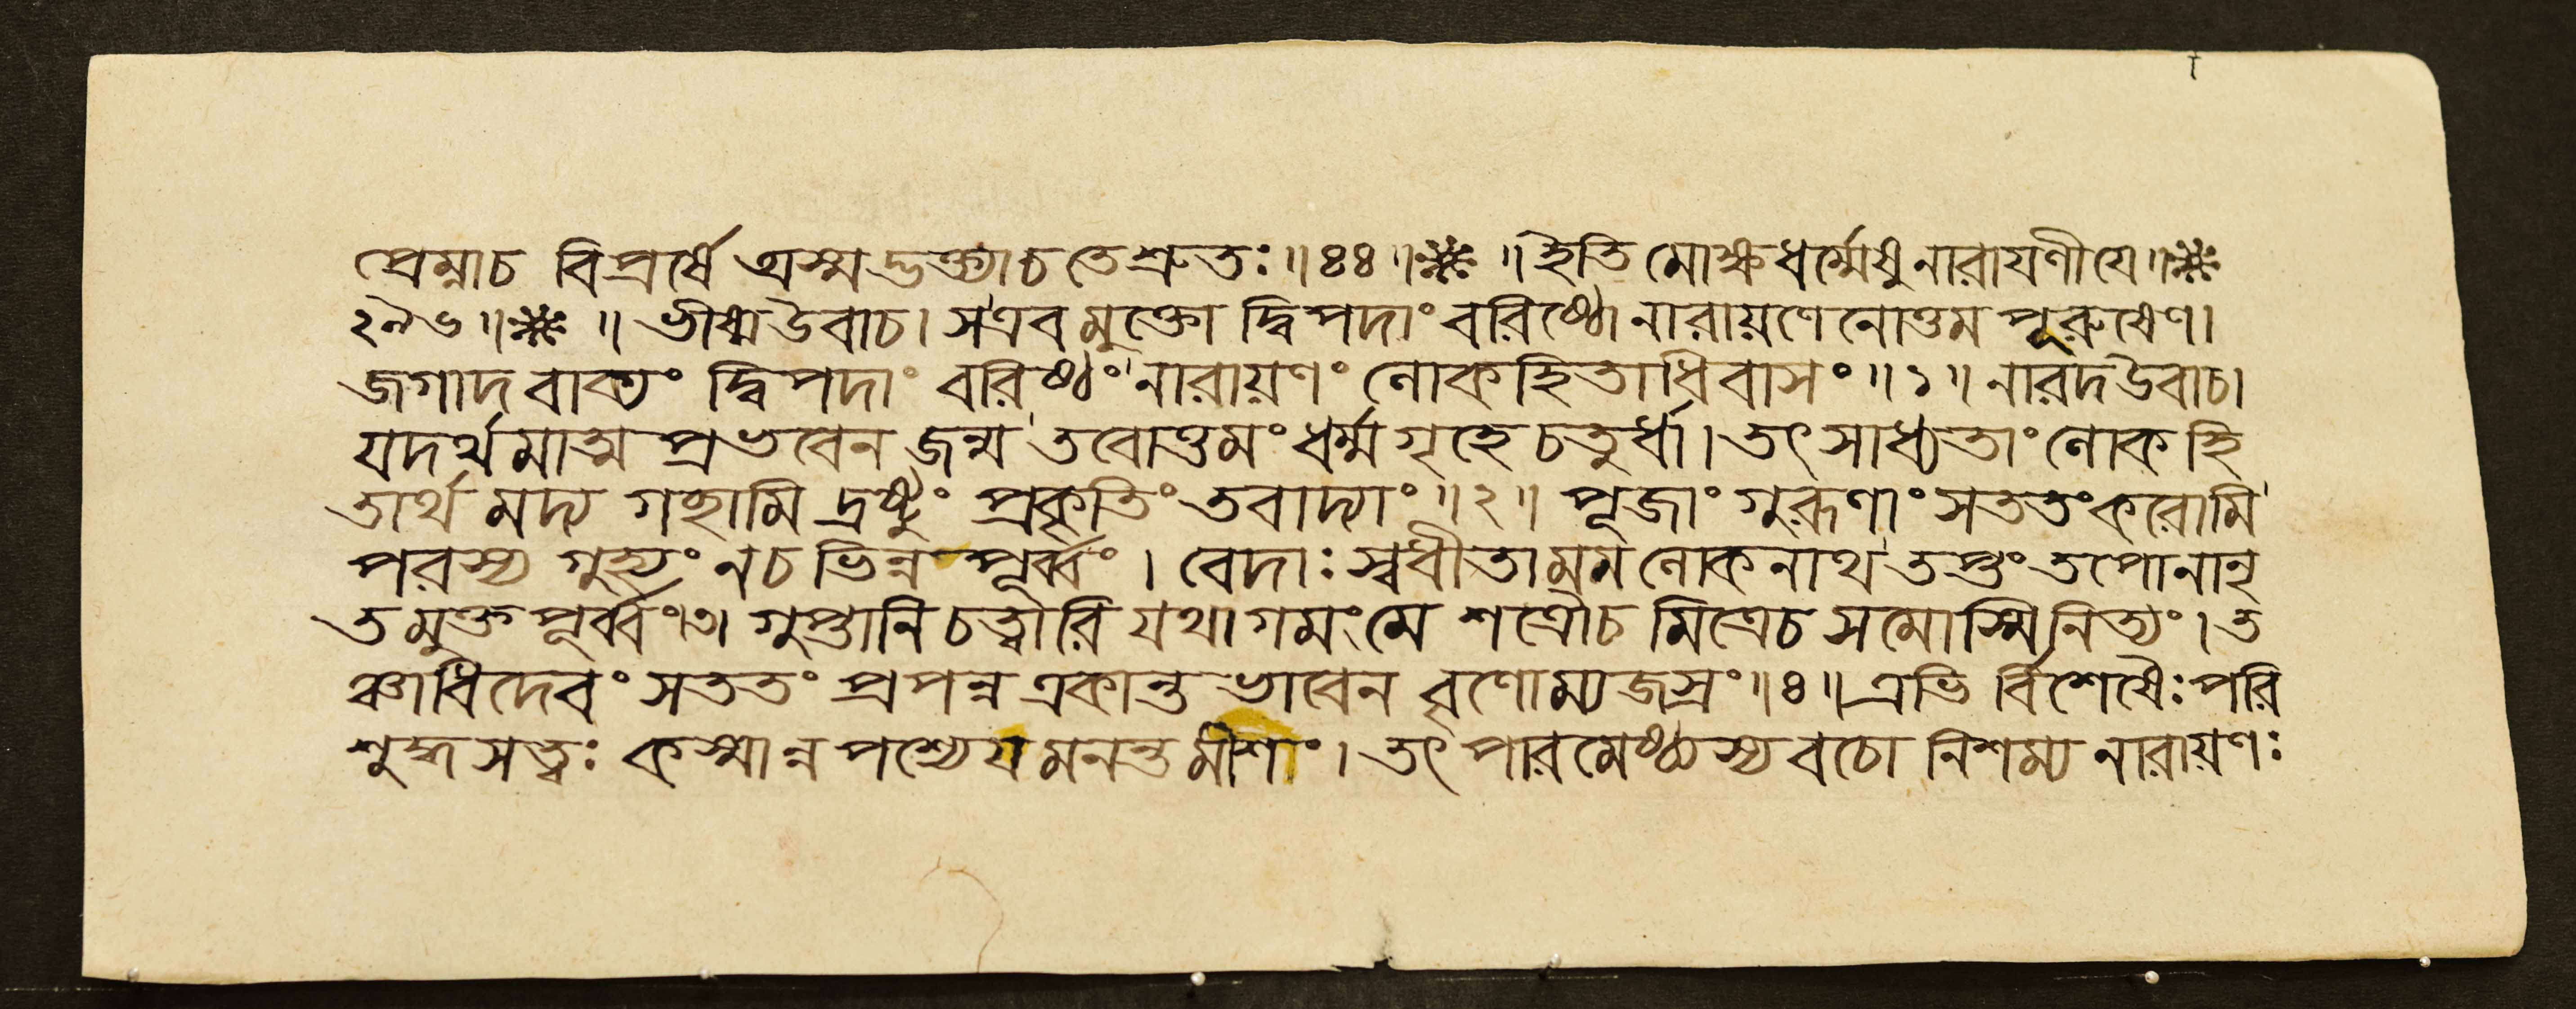 প্রেম্নাচ বিপ্রর্ষে অস্মদ্ভক্ত্যাচ তে শ্রুতঃ॥৪৪॥ ॥ইতি মোক্ষধর্ম্মেষু নারায়ণীয়ে॥
২৯৬॥ ॥ভীষ্মউবাচ। সএবমুক্তো দ্বিপদাং বরিষ্ঠো নারায়ণেনোত্তমপূরুষেণ।
জগাদবাক্যং দ্বিপদাং বরিষ্ঠং নারায়ণং লোকহিতাধিবাসং॥১॥ নারদউবাচ।
যদর্থমাত্মপ্রভবেন জন্ম তবোত্তমং ধর্ম্মগৃহে চতুর্ধা। তৎ সাধ্যতাং লোকহি
তার্থমদ্য গচ্ছামি দ্রষ্টুং প্রকৃতিং তবাদ্যাং॥২॥ পূজাং গুরূণাং সততং করোমি
পরস্য গুহ্যং নচ ভিন্নপূর্ব্বং। বেদাঃ স্বধীতামম লোকনাথ তপ্তং তপোনানৃ
তমুক্তপূর্ব্বং।৩। গুপ্তানি চত্বারি যথাগমং মে শত্রৌচ মিত্রেচ সমোস্মি নিত্যং। ত
ঞ্চাধিদেবং সততং প্রপন্ন একান্তভাবেন বৃণোম্যজস্রং॥৪॥ এভির্বিশেষৈঃ পরি
শুদ্ধসত্ত্বঃ কস্মান্ন পশ্যেয়মনন্তমীশং। তৎ পারমেষ্ঠ্যস্য বচো নিশম্য নারায়ণঃ